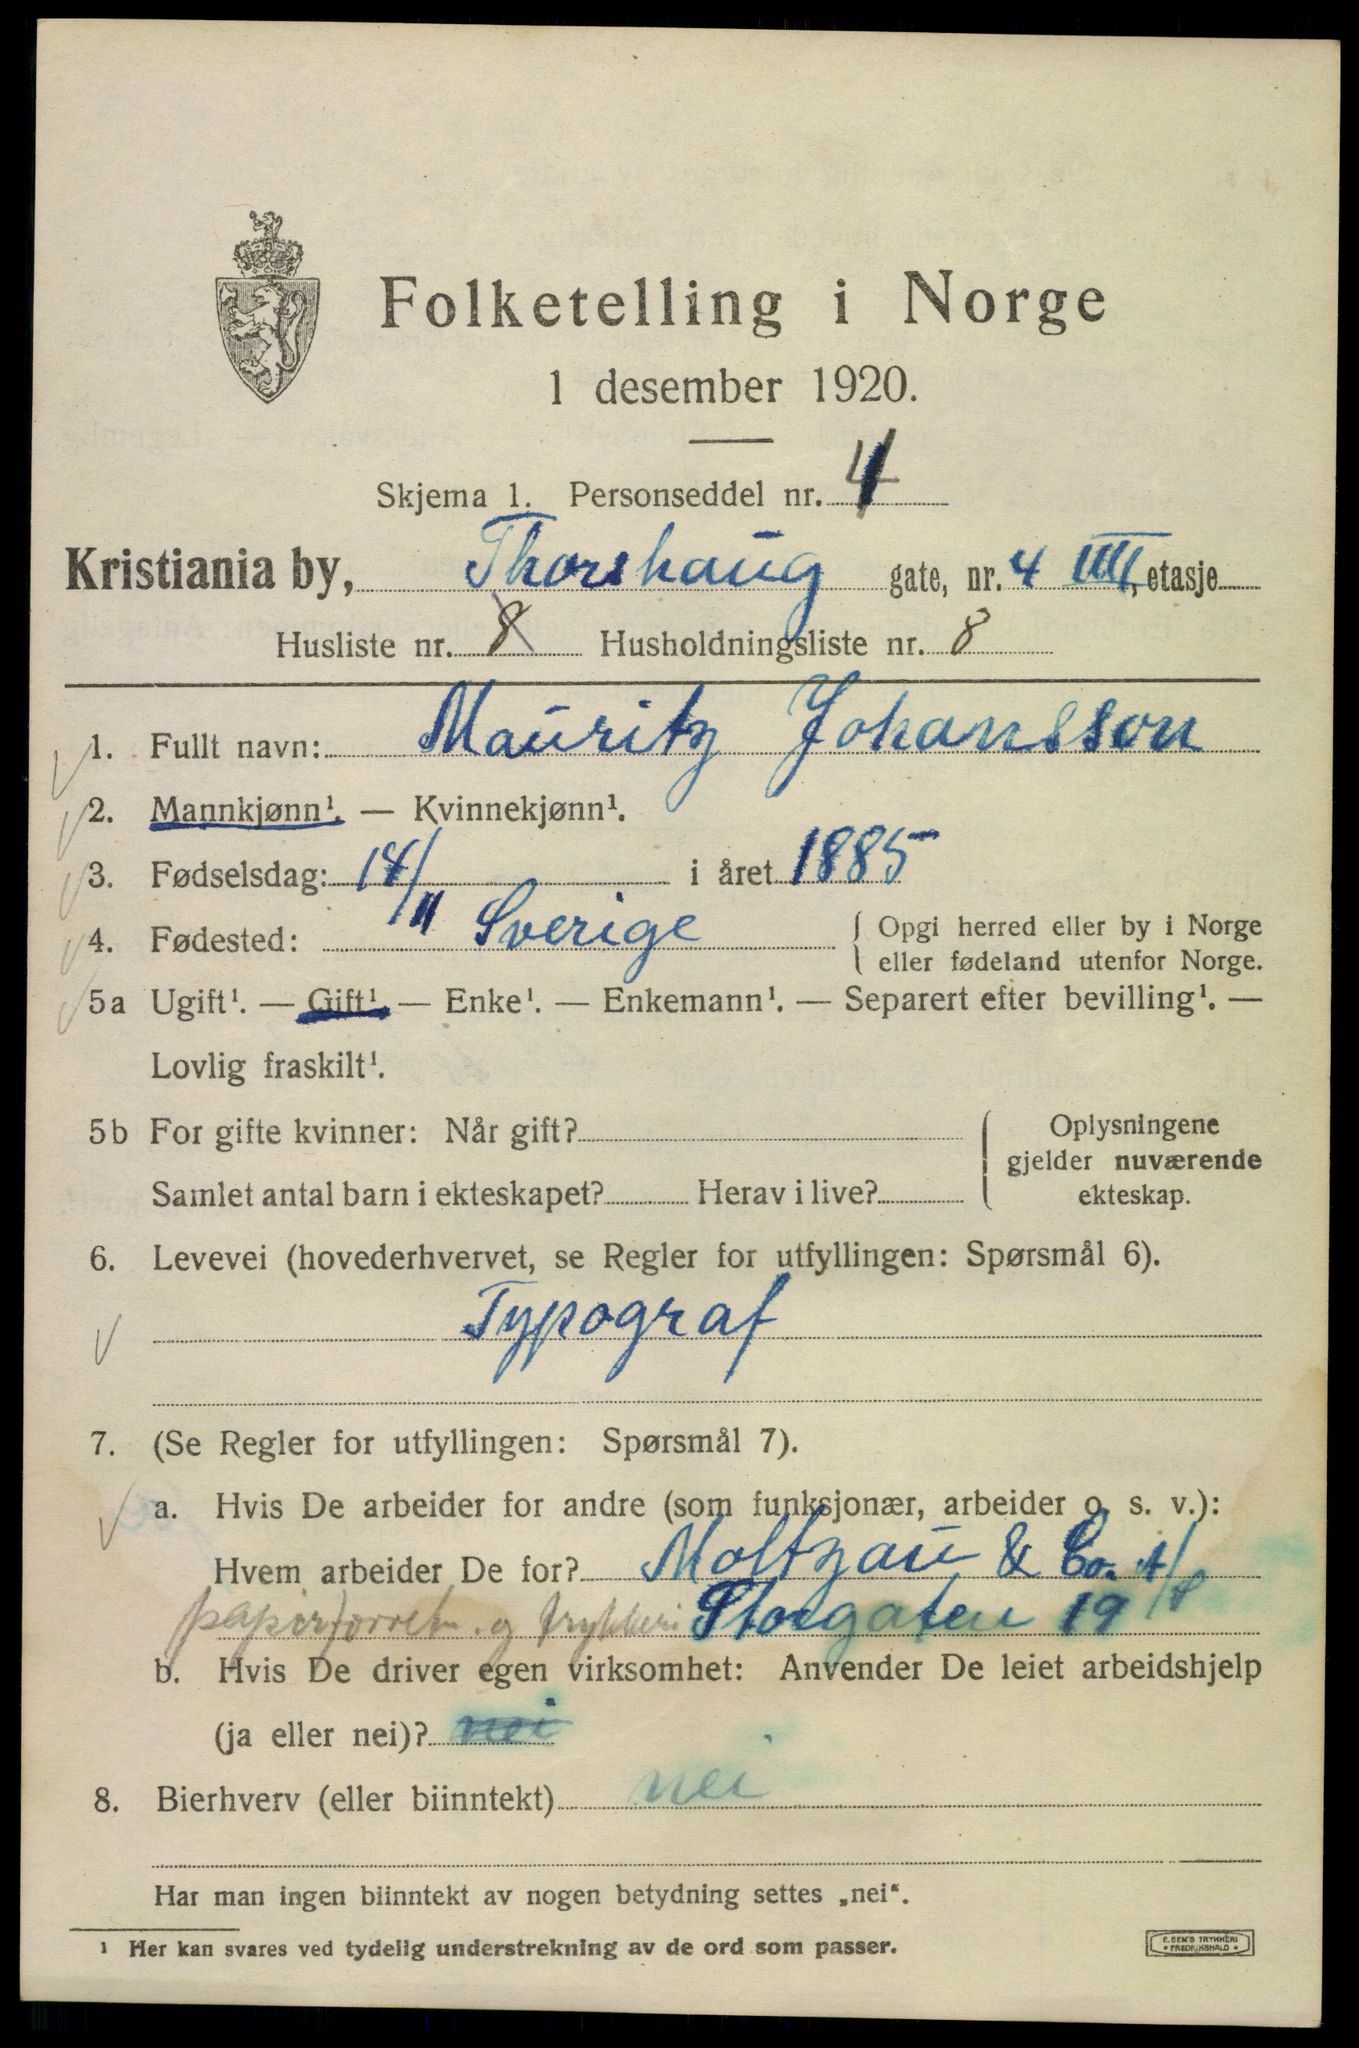 Folketelling i Norge
1 desember 1920.
Skjema 1. Personseddel nr. 4
Kristiania by, Thorshaug gate, nr. 4 IIII, etasje
Husliste nr. 8 Husholdningsliste nr. 8
1. Fullt navn: Mauritz Johansson
2. Mannkjønn¹. — Kvinnekjønn¹.
3. Fødselsdag: 14/11 i året 1885
4. Fødested: Sverige { Opgi herred eller by i Norge
eller fødeland utenfor Norge.
5a Ugift¹. — Gift¹. — Enke¹. — Enkemann¹. — Separert efter bevilling¹. —
Lovlig fraskilt¹.
5b For gifte kvinner: Når gift? { Oplysningene
gjelder nuværende
Samlet antal barn i ekteskapet? Herav i live? ekteskap.
6. Levevei (hovederhvervet, se Regler for utfyllingen: Spørsmål 6).
Typograf
7. (Se Regler for utfyllingen: Spørsmål 7).
a. Hvis De arbeider for andre (som funksjonær, arbeider o. s. v.):
Hvem arbeider De for? Moltzau & Co. A/S
papirforretn. og trykkeri Storgaten 19
b. Hvis De driver egen virksomhet: Anvender De leiet arbeidshjelp
(ja eller nei)? nei
8. Bierhverv (eller biinntekt) nei
Har man ingen biinntekt av nogen betydning settes „nei“.
¹ Her kan svares ved tydelig understrekning av de ord som passer.
E. SEM'S TRYKKERI
• FREDRIKSHALD •